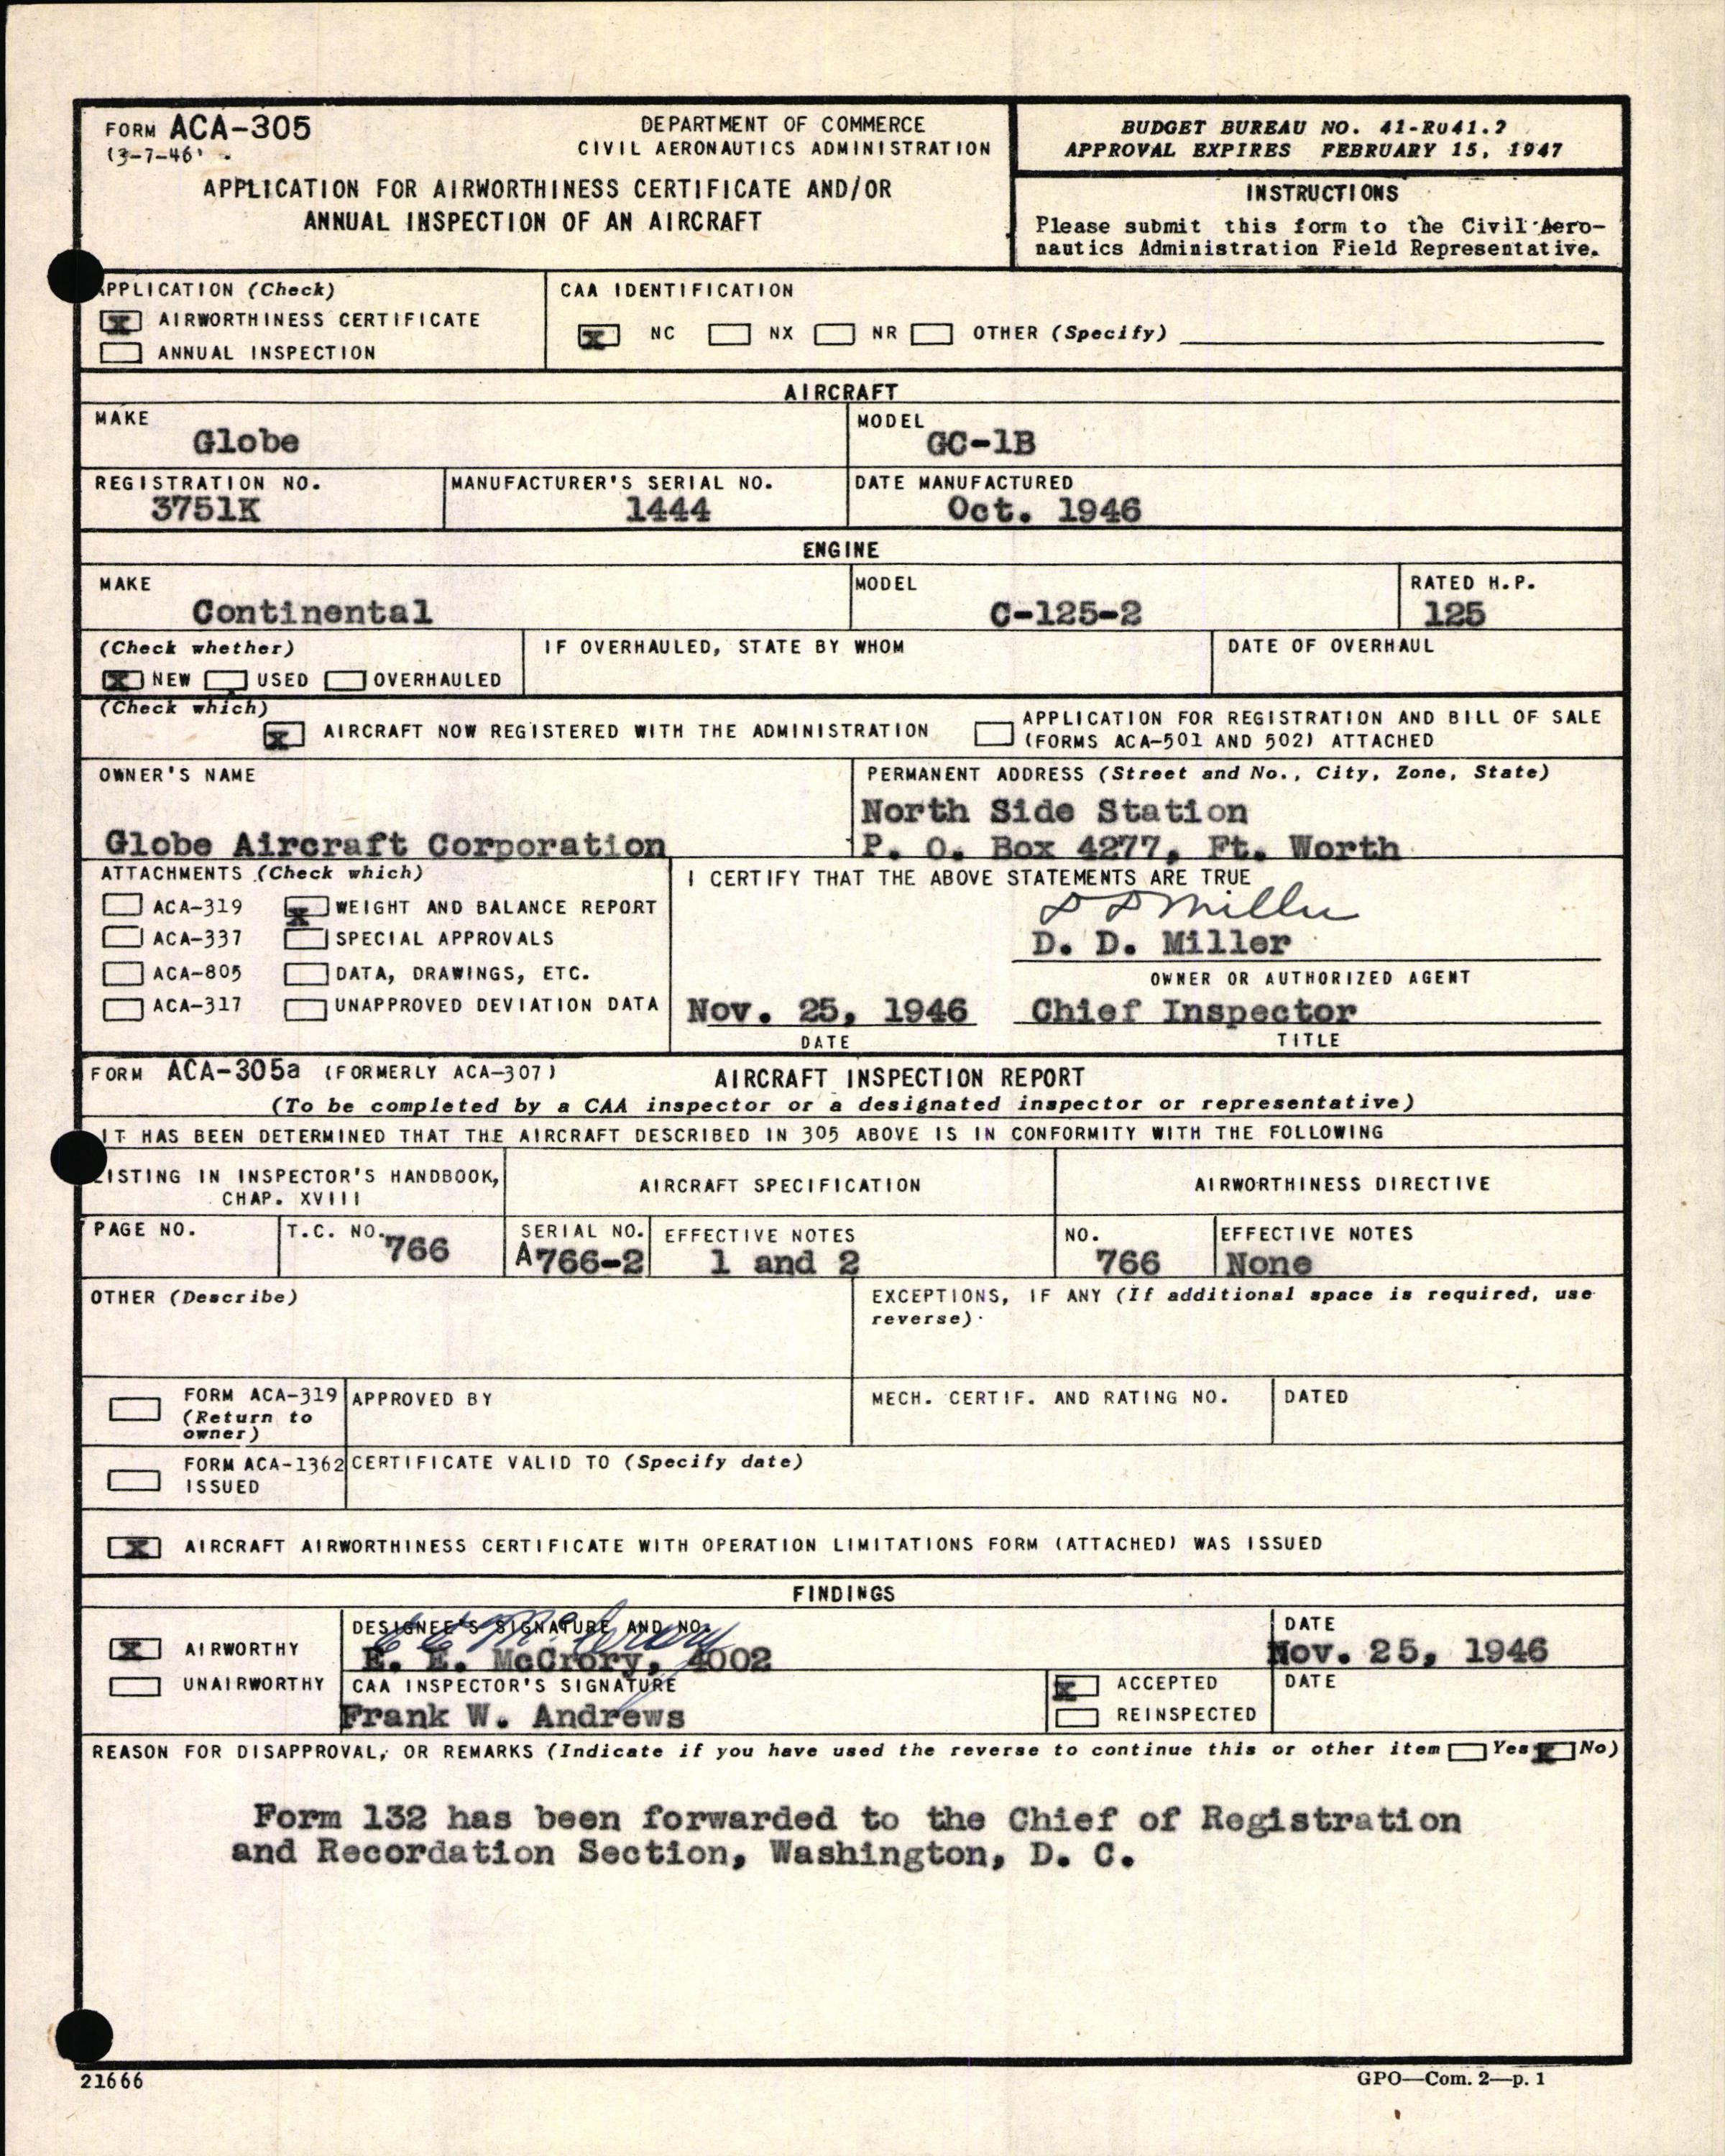 FORM ACA-305
(3-7-46)
DEPARTMENT OF COMMERCE
CIVIL AERONAUTICS ADMINISTRATION
APPLICATION FOR AIRWORTHINESS CERTIFICATE AND/OR
ANNUAL INSPECTION OF AN AIRCRAFT
BUDGET BUREAU NO. 41-R041.2
APPROVAL EXPIRES FEBRUARY 15, 1947
INSTRUCTIONS
Please submit this form to the Civil Aero-
nautics Administration Field Representative.
APPLICATION (Check)
X AIRWORTHINESS CERTIFICATE
ANNUAL INSPECTION
CAA IDENTIFICATION
X NC NX NR OTHER (Specify)
AIRCRAFT
MAKE
Globe
MODEL
GC-1B
REGISTRATION NO.
3751K
MANUFACTURER'S SERIAL NO.
1444
DATE MANUFACTURED
Oct. 1946
ENGINE
MAKE
Continental
MODEL
C-125-2
RATED H.P.
125
(Check whether)
X NEW USED OVERHAULED
IF OVERHAULED, STATE BY WHOM
DATE OF OVERHAUL
(Check which)
X AIRCRAFT NOW REGISTERED WITH THE ADMINISTRATION
APPLICATION FOR REGISTRATION AND BILL OF SALE
(FORMS ACA-501 AND 502) ATTACHED
OWNER'S NAME
Globe Aircraft Corporation
PERMANENT ADDRESS (Street and No., City, Zone, State)
North Side Station
P. O. Box 4277, Ft. Worth
ATTACHMENTS (Check which)
ACA-319 X WEIGHT AND BALANCE REPORT
ACA-337 SPECIAL APPROVALS
ACA-805 DATA, DRAWINGS, ETC.
ACA-317 UNAPPROVED DEVIATION DATA
I CERTIFY THAT THE ABOVE STATEMENTS ARE TRUE
D D Miller
D. D. Miller
OWNER OR AUTHORIZED AGENT
Nov. 25, 1946 Chief Inspector
DATE TITLE
FORM ACA-305a (FORMERLY ACA-307) AIRCRAFT INSPECTION REPORT
(To be completed by a CAA inspector or a designated inspector or representative)
IT HAS BEEN DETERMINED THAT THE AIRCRAFT DESCRIBED IN 305 ABOVE IS IN CONFORMITY WITH THE FOLLOWING
LISTING IN INSPECTOR'S HANDBOOK,
CHAP. XVIII
AIRCRAFT SPECIFICATION
AIRWORTHINESS DIRECTIVE
PAGE NO.
T.C. NO.
766
SERIAL NO.
A766-2
EFFECTIVE NOTES
1 and 2
NO.
766
EFFECTIVE NOTES
None
OTHER (Describe)
EXCEPTIONS, IF ANY (If additional space is required, use
reverse).
FORM ACA-319
(Return to
owner)
APPROVED BY
MECH. CERTIF. AND RATING NO.
DATED
FORM ACA-1362
ISSUED
CERTIFICATE VALID TO (Specify date)
X AIRCRAFT AIRWORTHINESS CERTIFICATE WITH OPERATION LIMITATIONS FORM (ATTACHED) WAS ISSUED
FINDINGS
X AIRWORTHY
UNAIRWORTHY
DESIGNEE'S SIGNATURE AND NO.
E E McCrory
E. E. McCrory, 4002
DATE
Nov. 25, 1946
CAA INSPECTOR'S SIGNATURE
Frank W. Andrews
X ACCEPTED
REINSPECTED
DATE
REASON FOR DISAPPROVAL, OR REMARKS (Indicate if you have used the reverse to continue this or other item Yes X No)
Form 132 has been forwarded to the Chief of Registration
and Recordation Section, Washington, D. C.
21666
GPO—Com. 2—p. 1